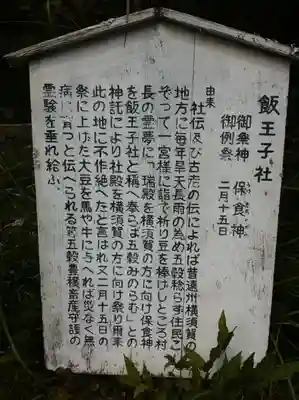 飯王子社
御祭神　保食神
御例祭　二月十五日
由来
社伝及び古老の伝によれば昔遠州横須賀の
地方に毎年旱天長雨の為め五穀稔らず住民こ
ぞって一宮様に詣で祈り豆を捧げしところ村
長の霊夢に「瑞殿を横須賀の方に向け保食神
を飯王子社と稱へ奉らば五穀みのらむ」との
神託により社殿を横須賀の方に向け祭り爾来
此の地に不作絶へたと言はれ又二月十五日の
祭に上げた大豆を馬や牛に与へれば災なく無
病に育つと伝へられる第五穀豊穣畜産守護の
霊験を垂れ給ふ